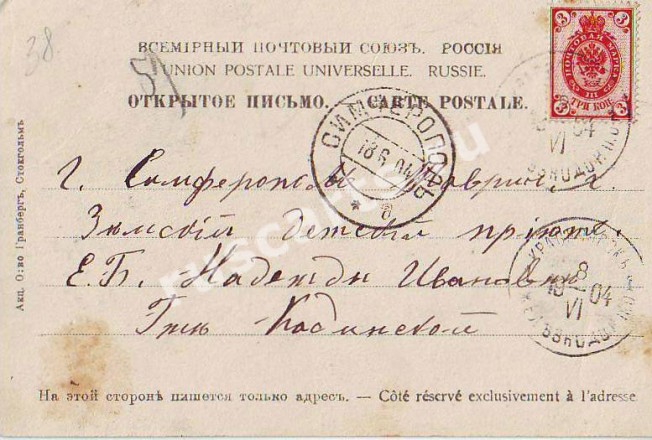 38
ВСЕМІРНЫЙ ПОЧТОВЫЙ СОЮЗЪ. РОССІЯ
UNION POSTALE UNIVERSELLE. RUSSIE.
ОТКРЫТОЕ ПИСЬМО. — CARTE POSTALE.
3 3
ПОЧТОВАЯ МАРКА
III
3 ТРИ КОП. 3
04
VI
СИМФЕРОПОЛЬ
18 6 04
* а *
г. Симферополь
Земскій детскій пріютъ.
Е.Б. Надежды Ивановны
8
10 – 04
VI
На этой сторонѣ пишется только адресъ. — Côté réservé exclusivement à l'adresse
Акц. О-во Гранбергъ, Стокгольмъ
ruscarts.ru